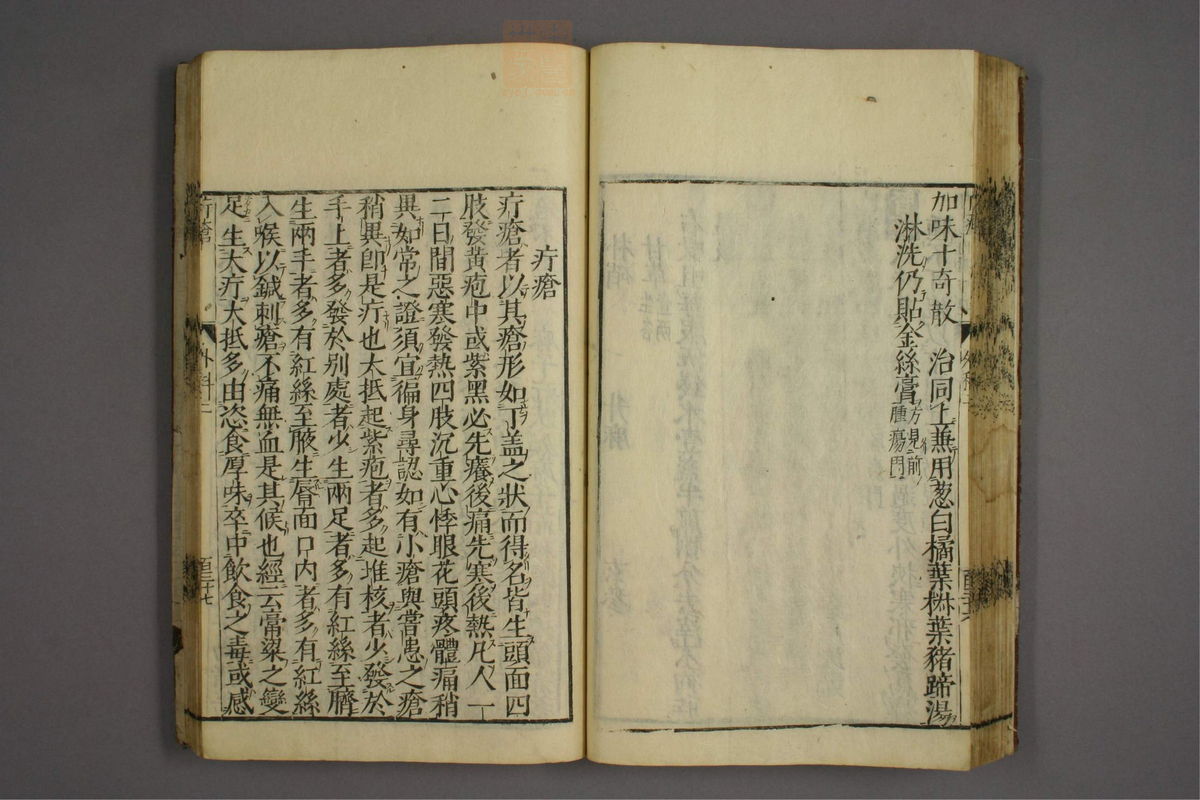 加味十奇散　治同上兼用葱白橘葉椒葉豬蹄湯
淋洗仍貼金絲膏方見前
腫瘍門
疔瘡
疔瘡者以其瘡形如丁盖之狀而得名皆生頭面四
肢發黃疱中或紫黑必先癢後痛先寒後熱凡人一
二日間惡寒發熱四肢沉重心悸眼花頭疼體痛稍
異如常之證須宜徧身尋認如有小瘡與嘗患之瘡
稍異卽是疔也大抵起紫疱者多起堆核者少發於
手上者多發於别處者少生兩足者多有紅絲至臍
生兩手者多有紅絲至腋生唇面口內者多有紅絲
入喉以鍼刺瘡不痛無血是其候也經云膏粱之變
足生大疔大抵多由恣食厚味卒中飲食之毒或感
疔瘡
外科二
百三十七